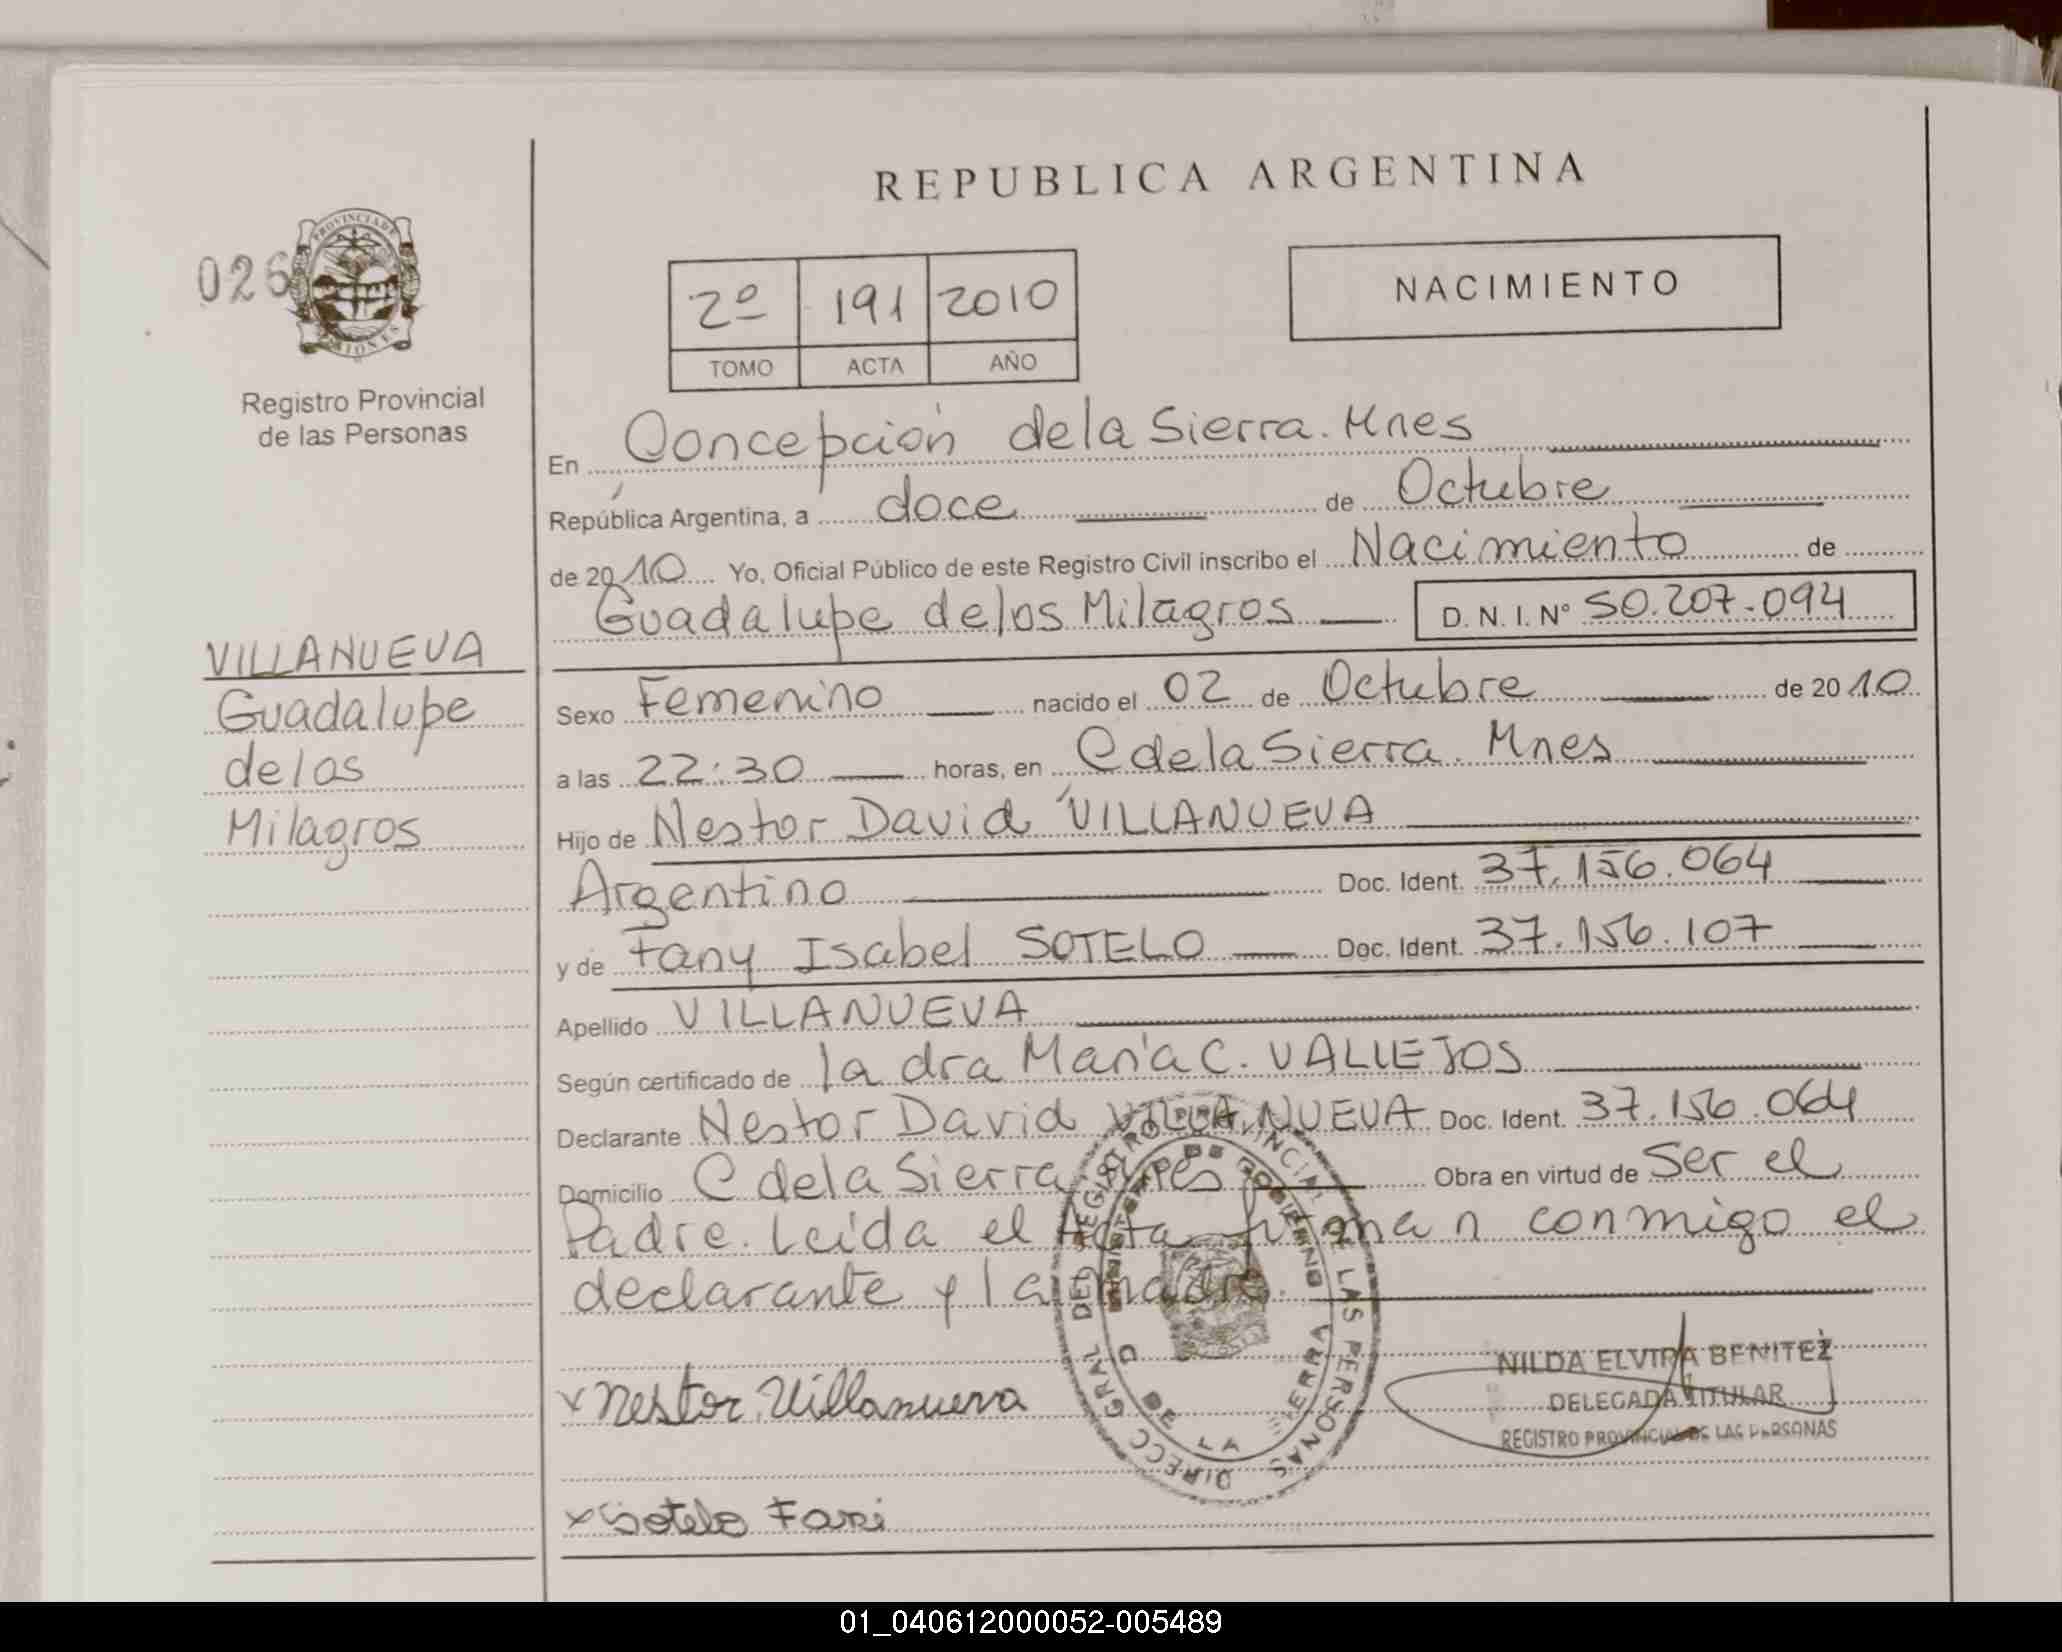 REPUBLICA ARGENTINA
026
PROVINCIA DE MISIONES
Registro Provincial
de las Personas
2º 191 2010
TOMO ACTA AÑO
NACIMIENTO
En Concepción de la Sierra. Mnes
República Argentina, a doce de Octubre
de 2010 Yo, Oficial Público de este Registro Civil inscribo el Nacimiento de
Guadalupe de los Milagros D. N. I. Nº 50.207.094
VILLANUEVA
Guadalupe
de los
Milagros
Sexo Femenino nacido el 02 de Octubre de 2010
a las 22:30 horas, en C de la Sierra. Mnes
Hijo de Nestor David VILLANUEVA
Argentino Doc. Ident. 37.156.064
y de Fany Isabel SOTELO Doc. Ident. 37.156.107
Apellido VILLANUEVA
Según certificado de la dra María C. VALLEJOS
Declarante Nestor David VILLANUEVA Doc. Ident. 37.156.064
Domicilio C de la Sierra Mnes Obra en virtud de Ser el
Padre. Leída el Acta firman conmigo el
declarante y la madre.
DIRECC GRAL DEL REGISTRO PROVINCIAL DE LAS PERSONAS
MINISTERIO DE GOBIERNO
C DE LA SIERRA
x Nestor Villanueva
NILDA ELVIRA BENITEZ
DELEGADA TITULAR
REGISTRO PROVINCIAL DE LAS PERSONAS
x Sotelo Fani
01_040612000052-005489